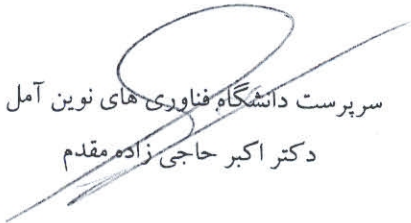 سرپرست دانشگاه فناوری های نوین آمل
دکتر اکبر حاجی زاده مقدم